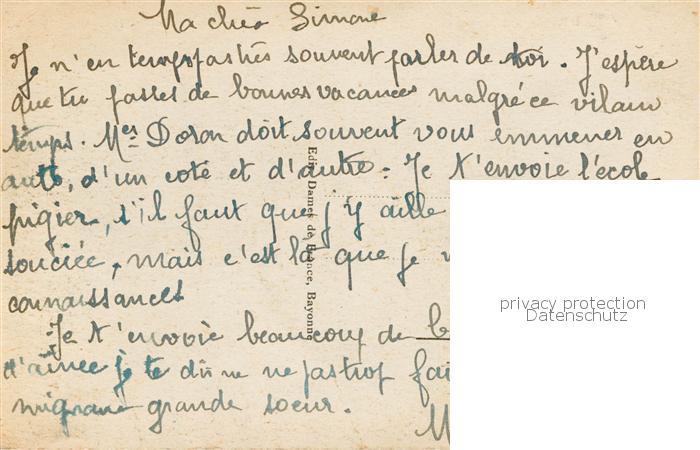 Ma chér Simone
Je n'en temps pastrés souvent parler de toi. J'espère
que tu passes de bonnes vacances malgré ce vilain
temps. Mer Doron doit souvent vous emmener en
auto, d'un coté et d'autre. Je t'envoie l'école
pigier, s'il faut que j'y aille
souciée, mais c'est là que je
connaissances
Je t'envoie beaucoup de
d'ainee je te dis ne ne pas trop fai
grande soeur.
M
Edit. Dames de France, Bayonne
privacy protection
Datenschutz